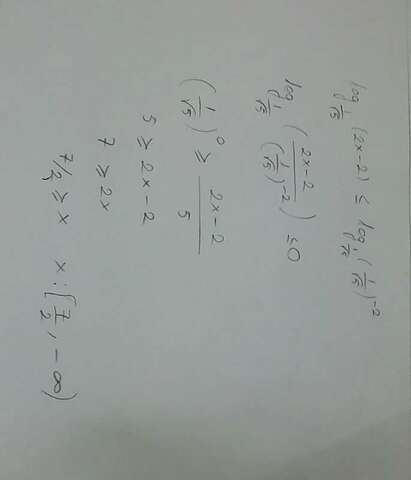 log_{1/√5} (2x-2) ≤ log_{1/√5} (1/√5)^{-2}
log_{1/√5} ( (2x-2) / (1/√5)^{-2} ) ≤ 0
(1/√5)^0 ≥ (2x-2)/5
5 ≥ 2x-2
7 ≥ 2x
7/2 ≥ x   x: [7/2, -∞)